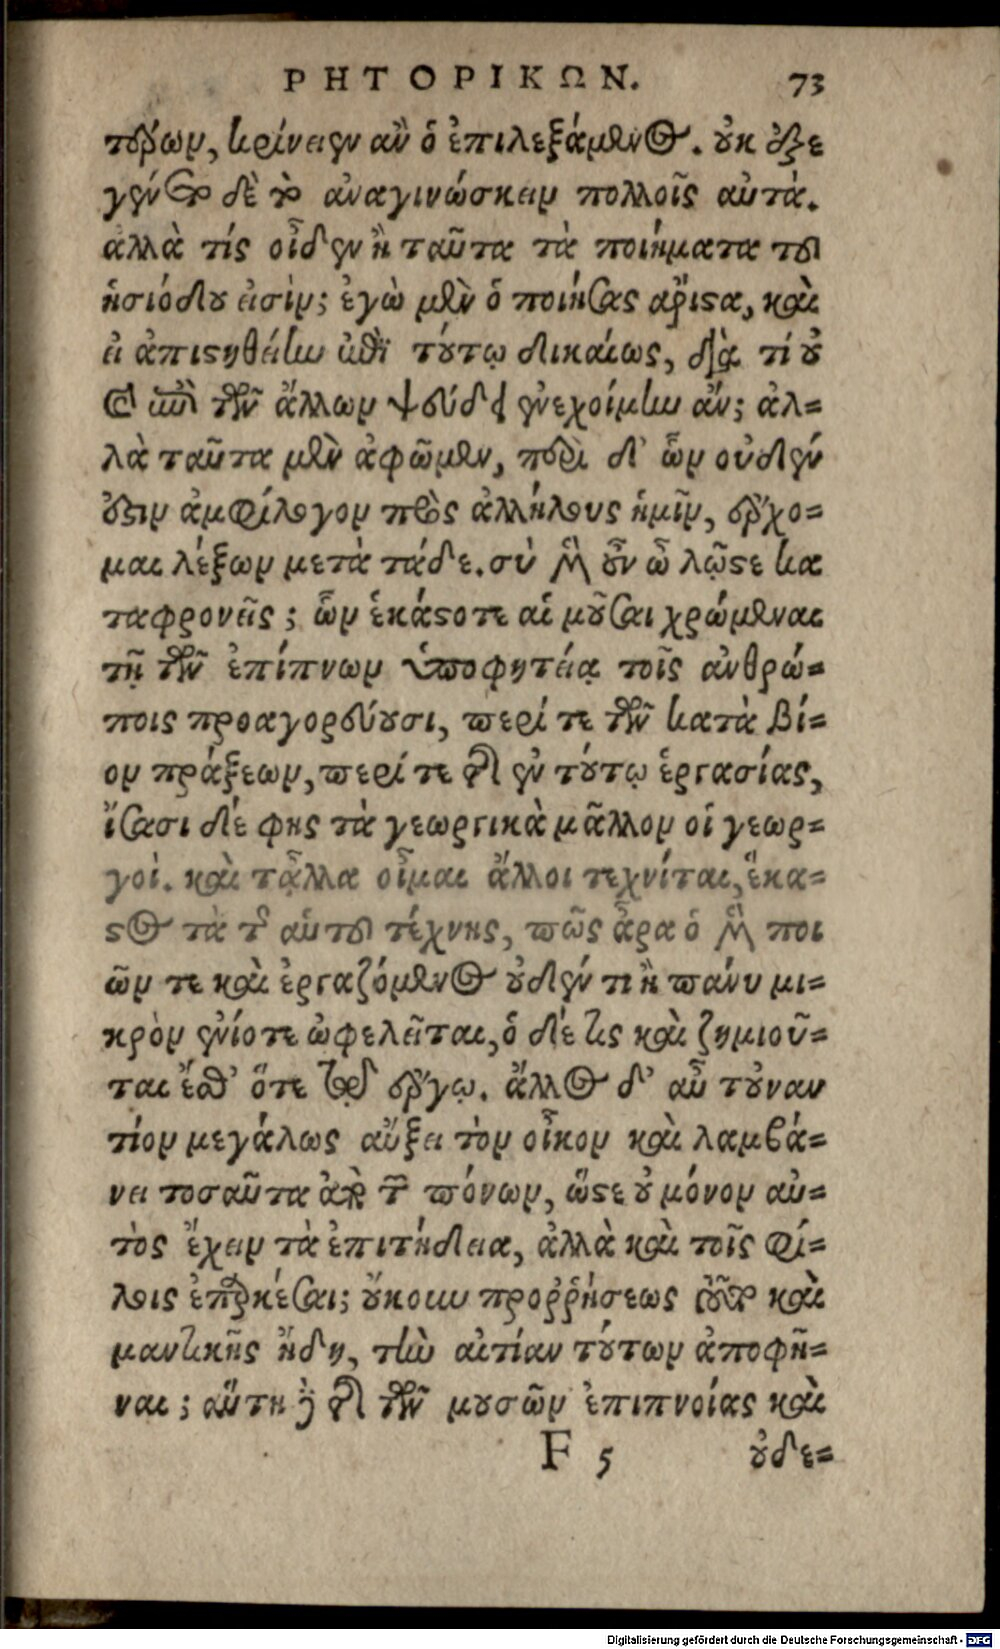 ΡΗΤΟΡΙΚΩΝ. 73
τέρων, κρίνειεν ἂν ὁ ἐπιλεξάμενος. οὐκ ἔξε
γένετο δὲ γὰρ ἀναγινώσκειν πολλοῖς αὐτά.
ἀλλὰ τίς οἶδεν ἢ ταῦτα τὰ ποιήματα τοῦ
ἡσιόδου εἰσίν; ἐγὼ μὲν ὁ ποιήσας ἄριστα, καὶ
εἰ ἀπιστηθείην ἐπὶ τούτῳ δικαίως, διὰ τί οὐ
καὶ ἐπὶ τῶν ἄλλων ψευδῆ ἐνεχοίμην ἄν; ἀλ=
λὰ ταῦτα μὲν ἀφῶμεν, περὶ δ' ὧν οὐδὲν
ἔστιν ἀμφίλογον πρὸς ἀλλήλους ἡμῖν, ἔρχο=
μαι λέξων μετὰ τάδε. σὺ μὲν οὖν ὦ λῷστε κα
ταφρονεῖς; ὧν ἑκάστοτε αἱ μοῦσαι χρώμεναι
τῇ τῶν ἐπίπνων ὑποφητείᾳ τοῖς ἀνθρώ=
ποις προαγορεύουσι, περί τε τῶν κατὰ βί=
ον πράξεων, περί τε τῆς ἐν τούτῳ ἐργασίας,
ἴσασι δέ φης τὰ γεωργικὰ μᾶλλον οἱ γεωρ=
γοί. καὶ τἆλλα οἶμαι ἄλλοι τεχνίται, ἕκα=
στος τὰ τῆς αὑτοῦ τέχνης, πῶς ἆρα ὁ μὲν ποι
ῶν τε καὶ ἐργαζόμενος οὐδέν τι ἢ πάνυ μι=
κρὸν ἐνίοτε ὠφελεῖται, ὁ δέ τις καὶ ζημιοῦ=
ται ἔσθ' ὅτε τῷ ἔργῳ. ἄλλος δ' αὖ τοὐναν
τίον μεγάλως αὔξει τὸν οἶκον καὶ λαμβά=
νει τοσαῦτα ἀπὸ τῶν πόνων, ὥστε οὐ μόνον αὐ=
τὸς ἔχειν τὰ ἐπιτήδεια, ἀλλὰ καὶ τοῖς φί=
λοις ἐπαρκέσαι; οὔκουν προῤῥήσεως τοῦτο καὶ
μαντικῆς ἤδη, τὴν αἰτίαν τούτων ἀποφῆ=
ναι; αὕτη δὲ τῆς τῶν μουσῶν ἐπιπνοίας καὶ
F 5 οὐδε=
Digitalisierung gefördert durch die Deutsche Forschungsgemeinschaft - DFG